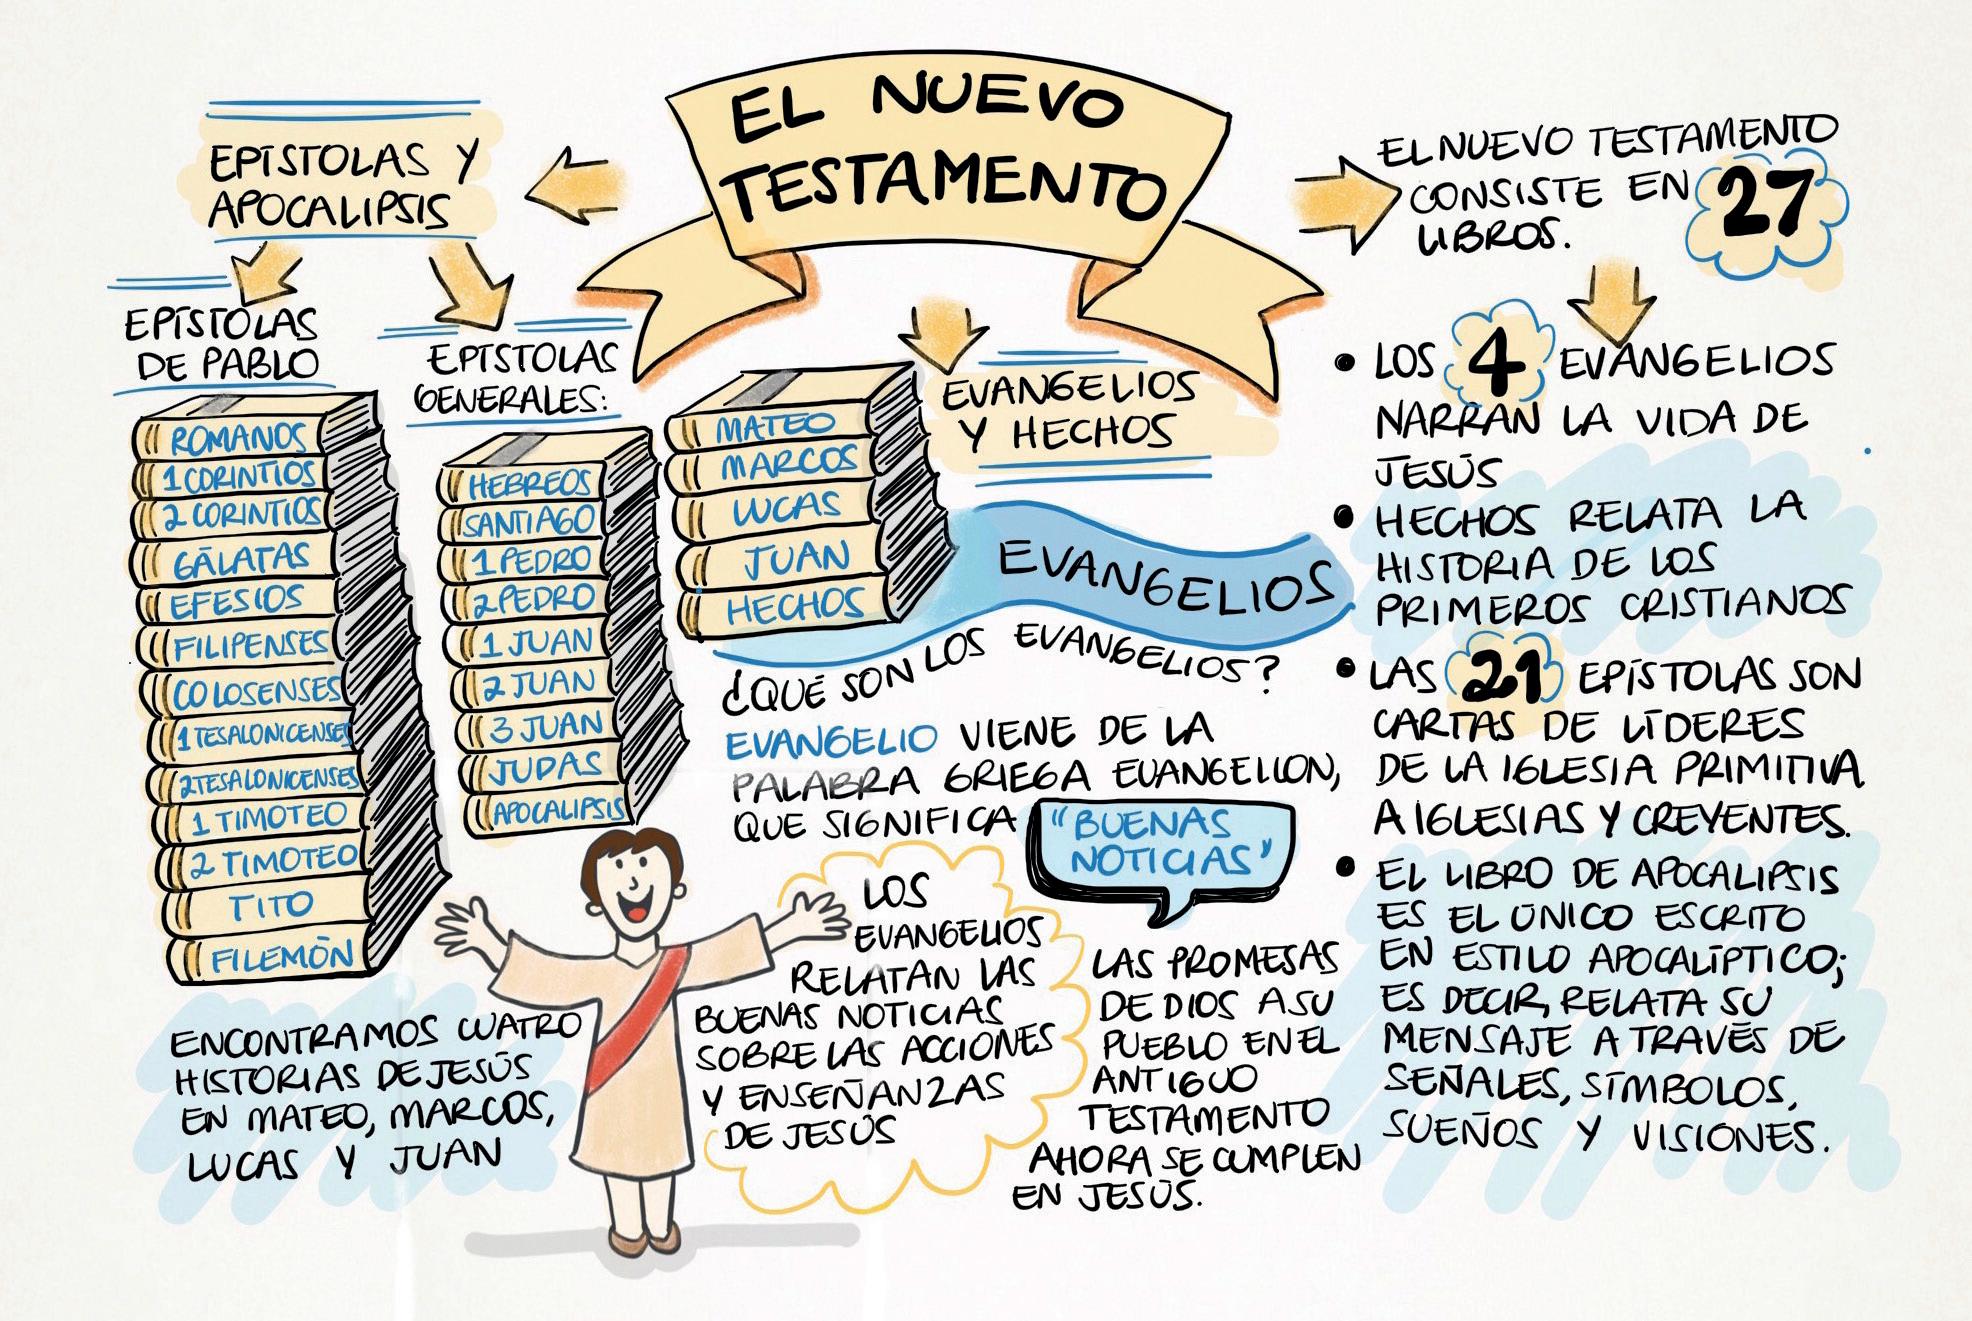 EL NUEVO
TESTAMENTO
EPÍSTOLAS Y
APOCALIPSIS
EPÍSTOLAS
DE PABLO
ROMANOS
1 CORINTIOS
2 CORINTIOS
GÁLATAS
EFESIOS
FILIPENSES
COLOSENSES
1 TESALONICENSES
2 TESALONICENSES
1 TIMOTEO
2 TIMOTEO
TITO
FILEMÓN
EPÍSTOLAS
GENERALES:
HEBREOS
SANTIAGO
1 PEDRO
2 PEDRO
1 JUAN
2 JUAN
3 JUAN
JUDAS
APOCALIPSIS
EVANGELIOS
Y HECHOS
MATEO
MARCOS
LUCAS
JUAN
HECHOS
EVANGELIOS
¿QUÉ SON LOS EVANGELIOS?
EVANGELIO VIENE DE LA
PALABRA GRIEGA EUANGELLON,
QUE SIGNIFICA
"BUENAS
NOTICIAS"
ENCONTRAMOS CUATRO
HISTORIAS DE JESÚS
EN MATEO, MARCOS,
LUCAS Y JUAN
LOS
EVANGELIOS
RELATAN LAS
BUENAS NOTICIAS
SOBRE LAS ACCIONES
Y ENSEÑANZAS
DE JESÚS
LAS PROMESAS
DE DIOS A SU
PUEBLO EN EL
ANTIGUO
TESTAMENTO
AHORA SE CUMPLEN
EN JESÚS.
EL NUEVO TESTAMENTO
CONSISTE EN 27
LIBROS.
• LOS 4 EVANGELIOS
NARRAN LA VIDA DE
JESÚS
• HECHOS RELATA LA
HISTORIA DE LOS
PRIMEROS CRISTIANOS
• LAS 21 EPÍSTOLAS SON
CARTAS DE LÍDERES
DE LA IGLESIA PRIMITIVA
A IGLESIAS Y CREYENTES.
• EL LIBRO DE APOCALIPSIS
ES EL ÚNICO ESCRITO
EN ESTILO APOCALÍPTICO;
ES DECIR, RELATA SU
MENSAJE A TRAVÉS DE
SEÑALES, SÍMBOLOS,
SUEÑOS Y VISIONES.